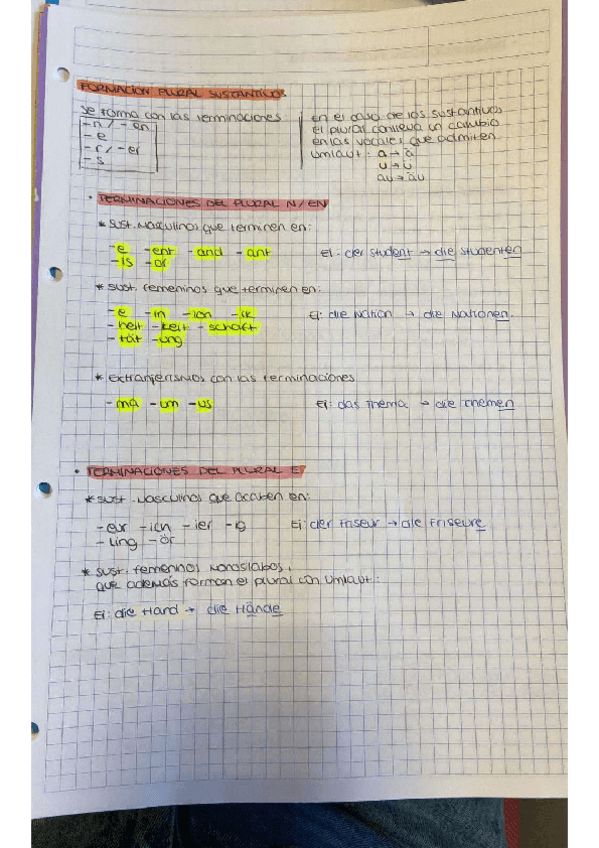 FORMACION PLURAL SUSTANTIVO:
Se forma con las terminaciones
-n / -en
-e
-r / -er
-s
en el caso de los sustantivos
el plural conlleva un cambio
en las vocales que admiten
umlaut: a → ä
u → ü
au → äu
• TERMINACIONES DEL PLURAL N/EN
* sust. masculinos que terminen en:
-e -ent -and -ant
-is -or
Ej: der Student → die Studenten
* sust. femeninos que terminen en:
-e -in -ion -ik
-heit -keit -schaft
-tät -ung
Ej: die Nation → die Nationen.
* extranjerismos con las terminaciones
-ma -um -us
Ej: das Thema → die Themen
• TERMINACIONES DEL PLURAL E
* sust. masculinos que acaben en:
-eur -ich -ier -ig
-ling -ör
Ej: der Friseur → die Friseure
* sust. femeninos monosílabos,
que además forman el plural con umlaut:
Ej: die Hand → die Hände